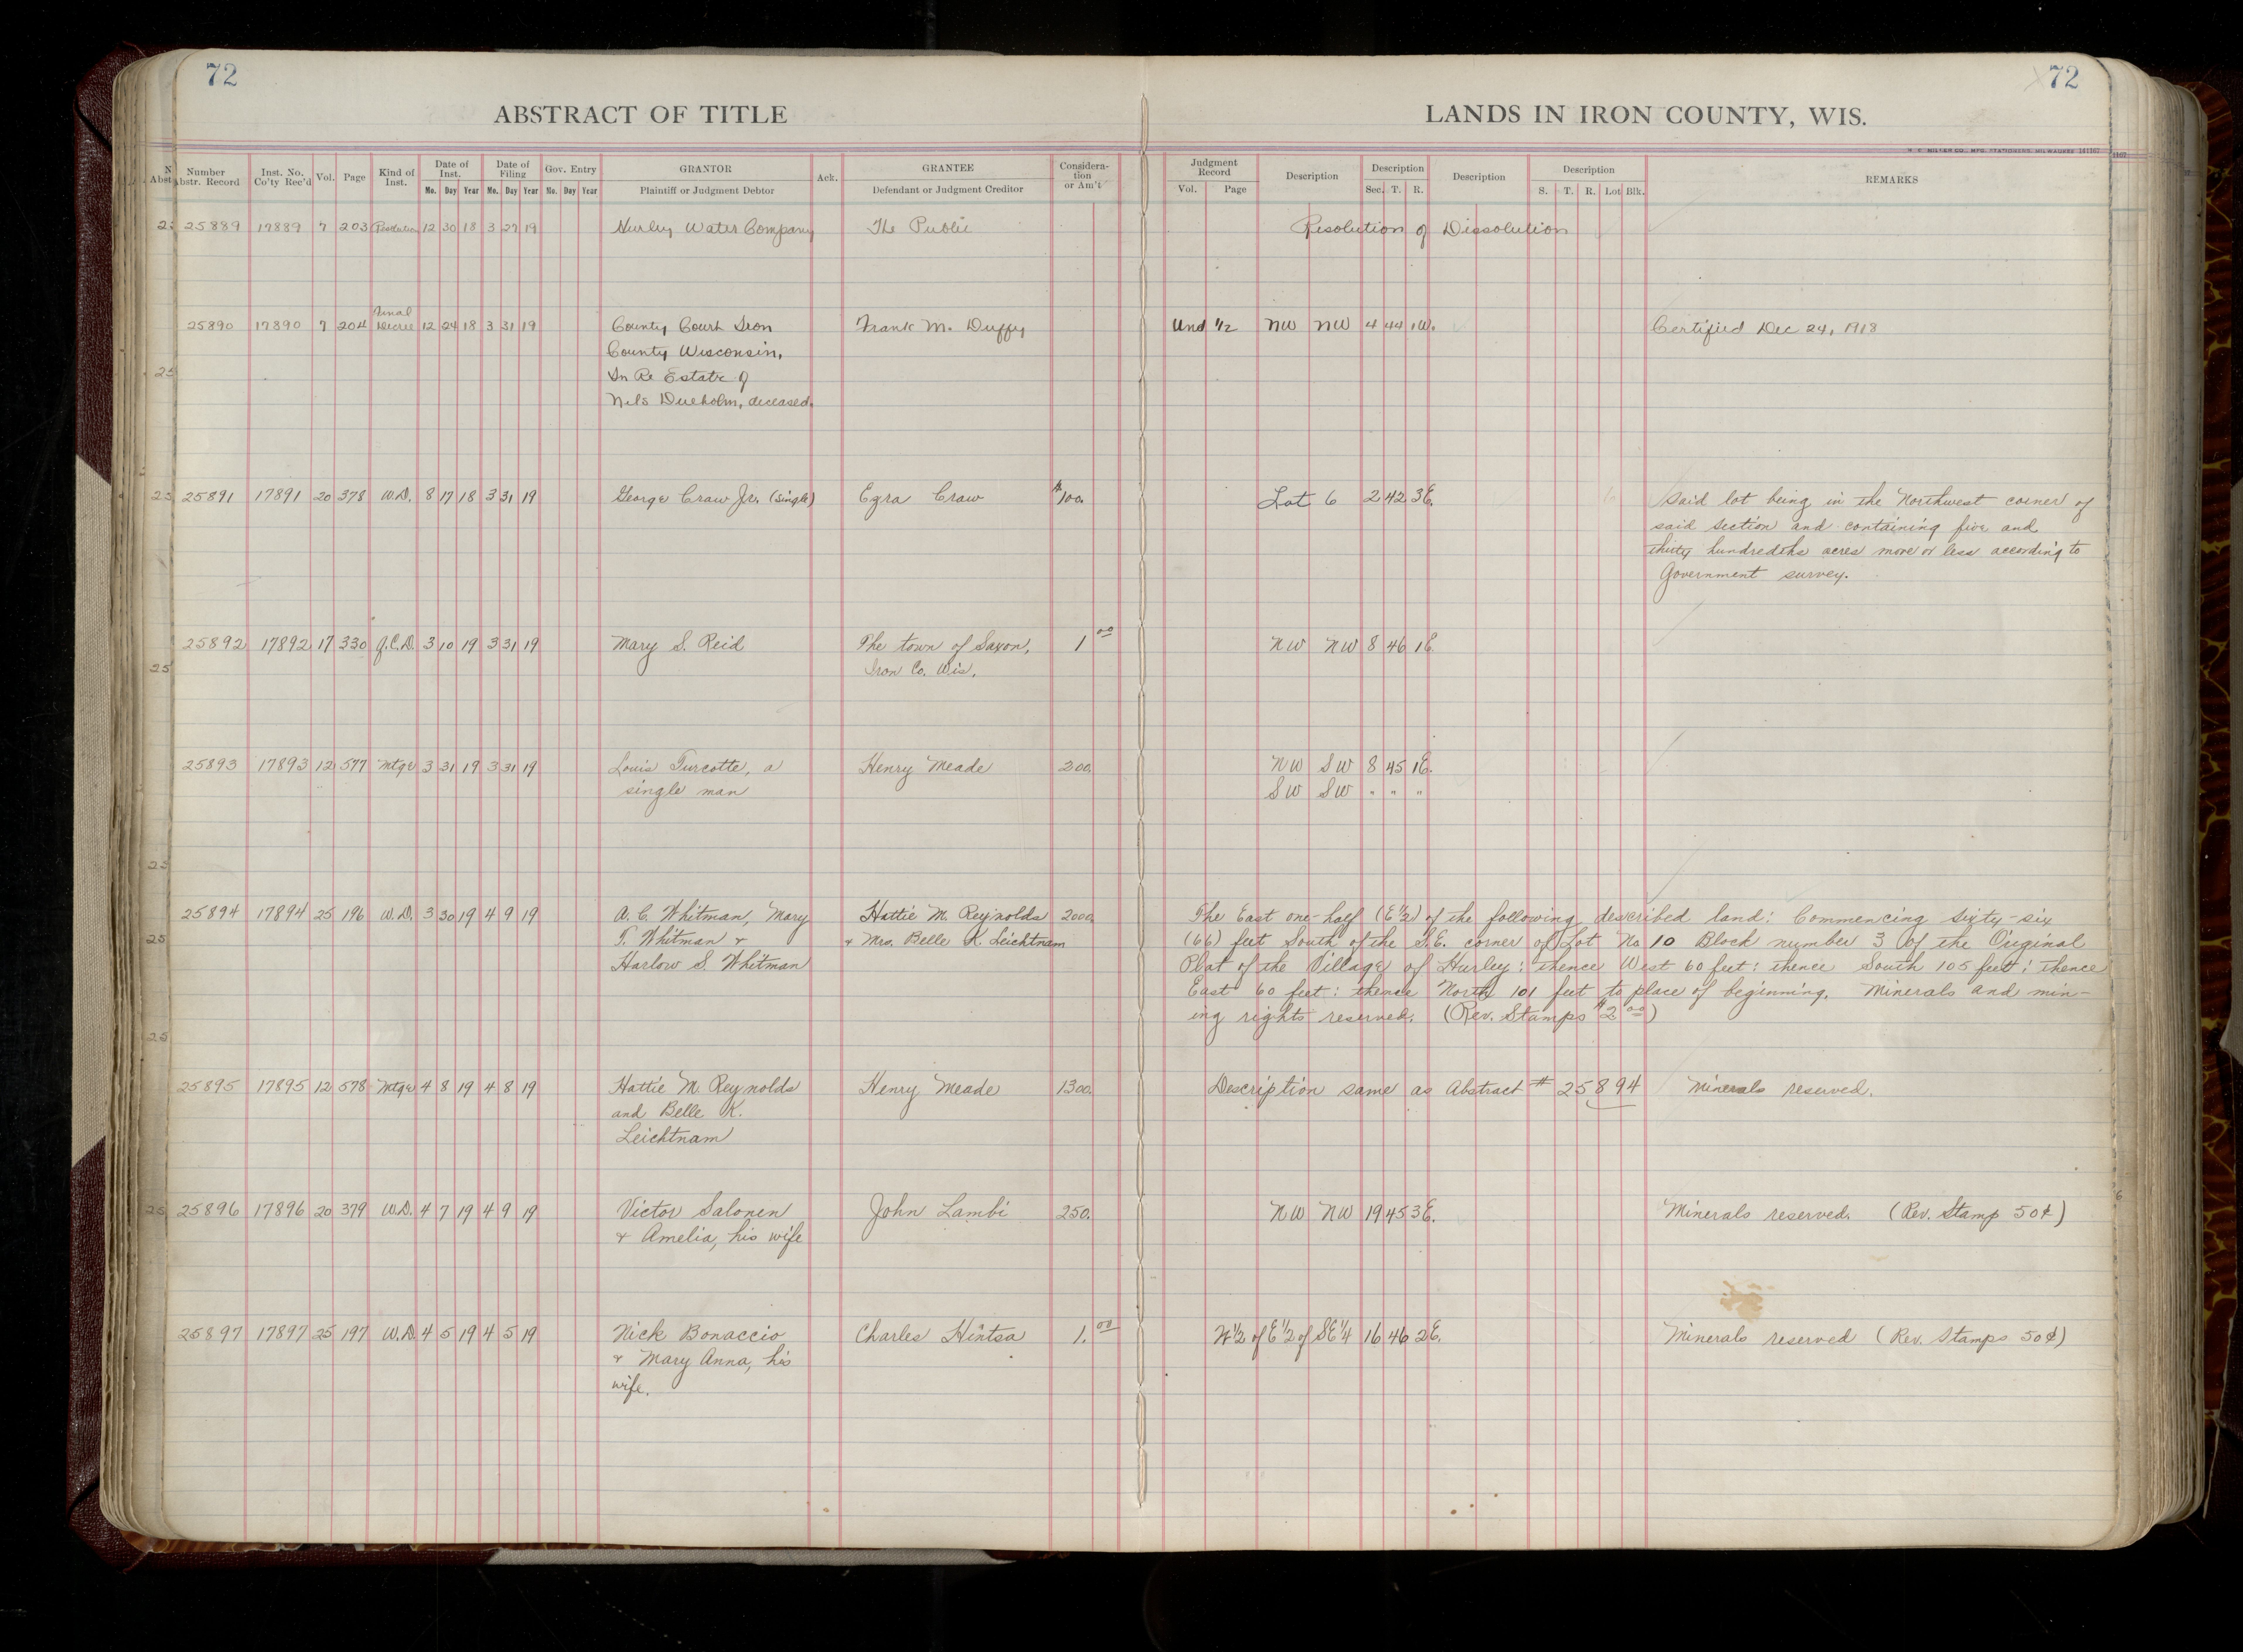 72
72
ABSTRACT OF TITLE
LANDS IN IRON COUNTY, WIS.
Number Abstr. Record Inst. No. Co'ty Rec'd Vol. Page Kind of Inst. Date of Inst. Mo. Day Year Date of Filing Mo. Day Year Gov. Entry Mo. Day Year GRANTOR Plaintiff or Judgment Debtor Ack. GRANTEE Defendant or Judgment Creditor Considera-tion or Am't Judgment Record Vol. Page Description Description Sec. T. R. Description Description S. T. R. Lot Blk. REMARKS
25889 17889 7 203 Resolution 12 30 18 3 27 19 Hurley Water Company The Public Resolution of Dissolution
Final
25890 17890 7 204 Decree 12 24 18 3 31 19 County Court Iron Frank M. Duffy Und 1/2 NW NW 4 44 1W. Certified Dec 24, 1918
County Wisconsin,
In Re Estate of
Nels Dueholm, deceased.
25891 17891 20 378 W.D. 8 17 18 3 31 19 George Craw Jr. (single) Ezra Craw $100. Lot 6 2 42 3E. Said lot being in the Northwest corner of
said section and containing five and
thirty hundredths acres more or less according to
Government survey.
25892 17892 17 330 Q.C.D. 3 10 19 3 31 19 Mary S. Reid The town of Saxon, 1 00 NW NW 8 46 1E.
Iron Co. Wis.
25893 17893 12 577 Mtge 3 31 19 3 31 19 Louis Turcotte, a Henry Meade 200. NW SW 8 45 1E.
single man SW SW " " "
25894 17894 25 196 W.D. 3 30 19 4 9 19 A. C. Whitman, Mary Hattie M. Reynolds 2000. The East one-half (E1/2) of the following described land: Commencing sixty-six
T. Whitman & & Mrs. Belle K. Leichtnam (66) feet South of the S.E. corner of Lot No 10 Block number 3 of the Original
Harlow S. Whitman Plat of the Village of Hurley: thence West 60 feet: thence South 105 feet: thence
East 60 feet: thence North 101 feet to place of beginning. Minerals and min-
ing rights reserved. (Rev. Stamps $2 00)
25895 17895 12 578 Mtge 4 8 19 4 8 19 Hattie M. Reynolds Henry Meade 1300. Description same as Abstract # 25894 Minerals reserved.
and Belle K.
Leichtnam
25896 17896 20 379 W.D. 4 7 19 4 9 19 Victor Salonen John Lambi 250. NW NW 19 45 3E. Minerals reserved. (Rev. Stamp 50¢)
& Amelia, his wife
25897 17897 25 197 W.D. 4 5 19 4 5 19 Nick Bonaccio Charles Hintsa 1. 00 W1/2 of E1/2 of SE1/4 16 46 2E. Minerals reserved (Rev. Stamps 50¢)
& Mary Anna, his
wife.